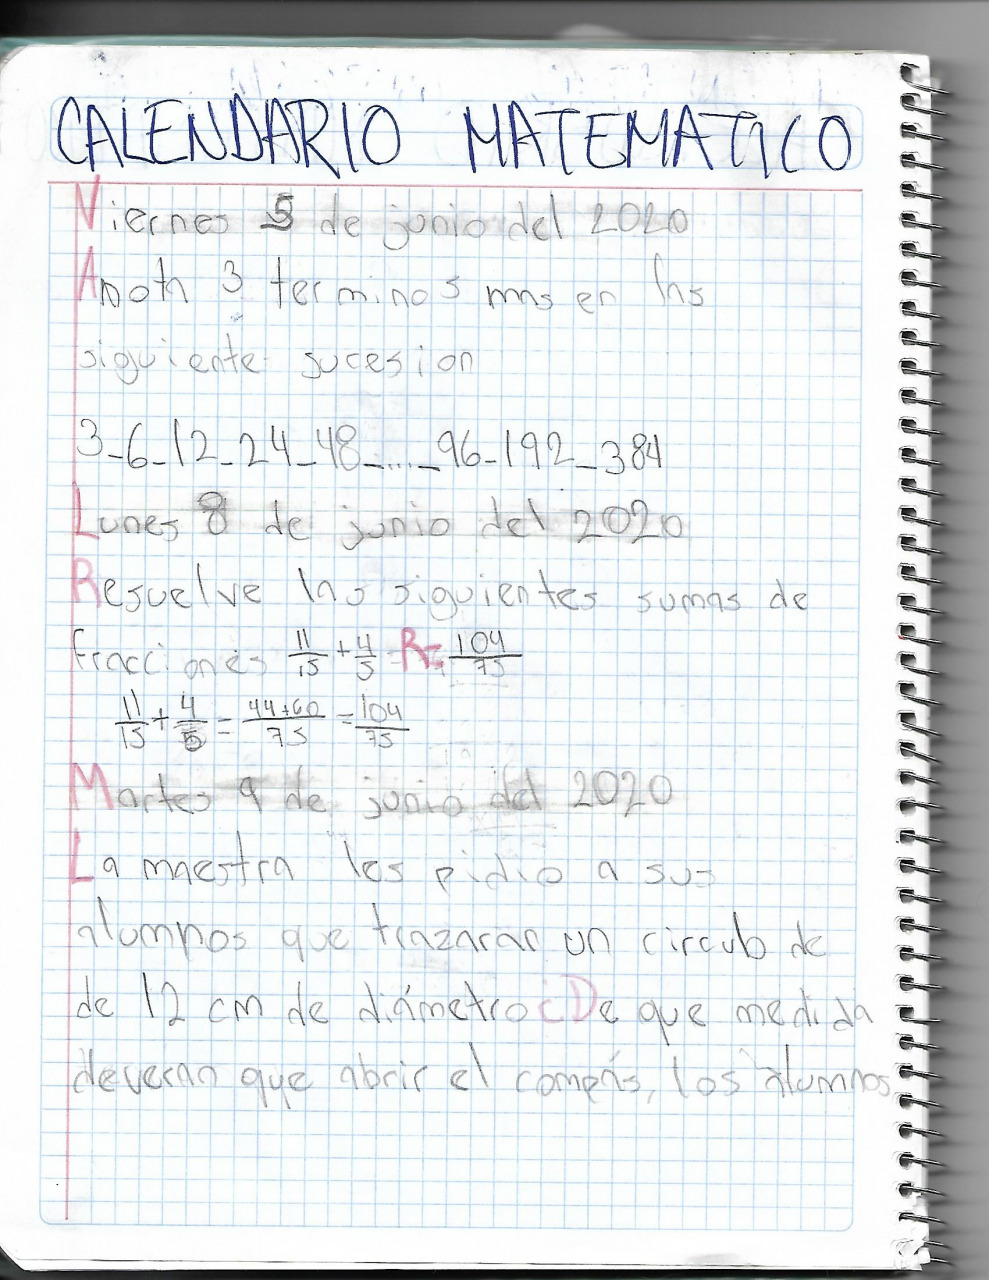 CALENDARIO MATEMATICO
Viernes 5 de junio del 2020
Anota 3 terminos mas en las
siguiente sucesion
3-6-12-24-48-...-96-192-384
Lunes 8 de junio del 2020
Resuelve las siguientes sumas de
fracciones 11/15 + 4/5 R= 104/75
11/15 + 4/5 = 44+60/75 = 104/75
Martes 9 de junio del 2020
La maestra les pidio a sus
alumnos que trazaran un circulo de
de 12 cm de diámetro ¿De que medida
deveran que abrir el compás, los alumnos